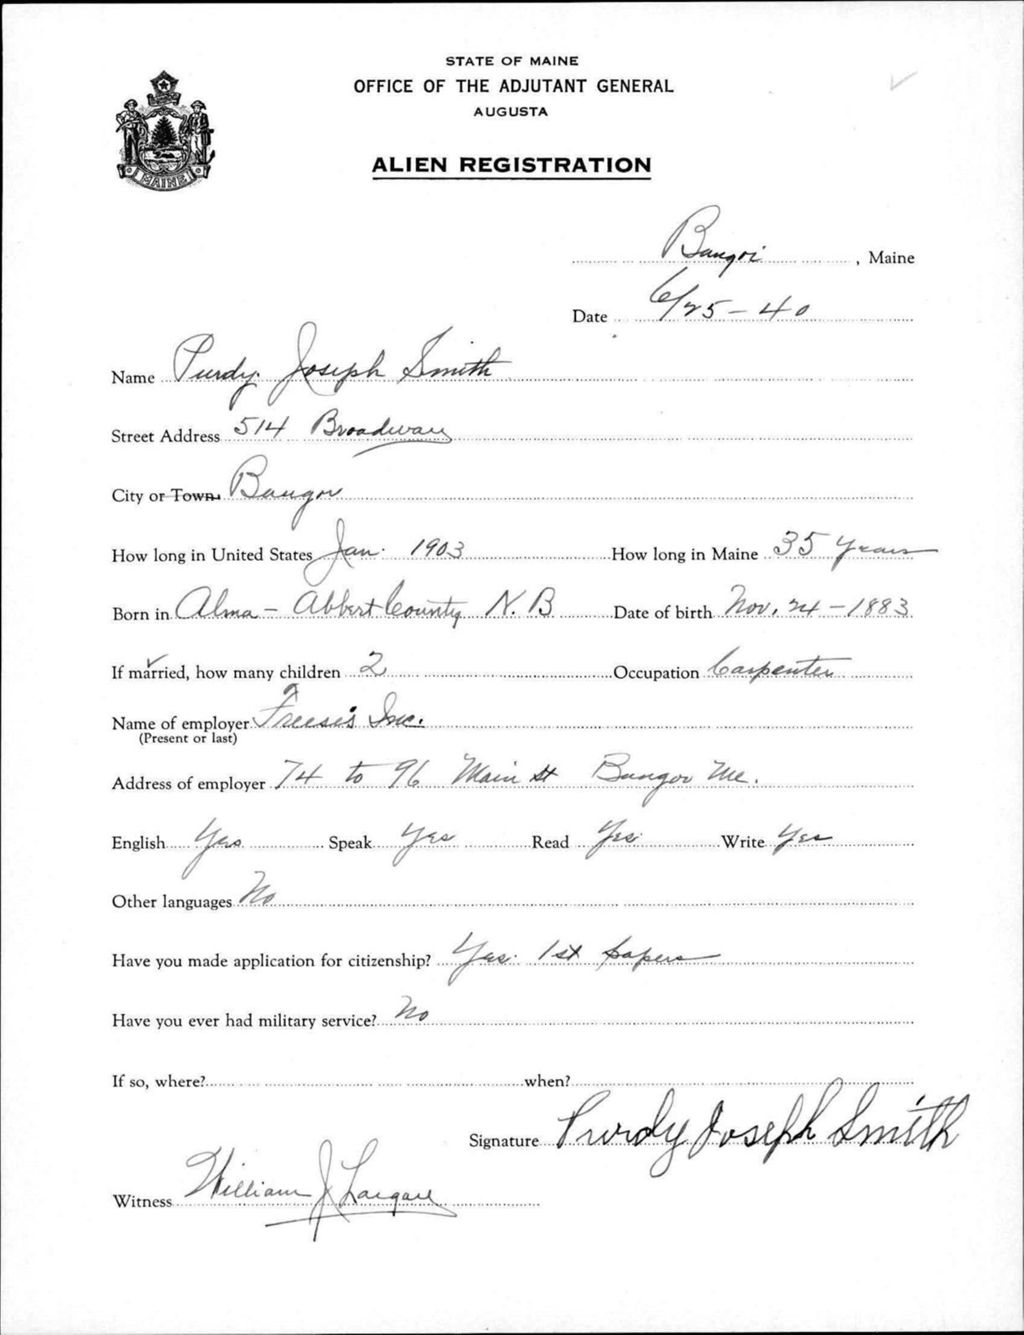 STATE OF MAINE
OFFICE OF THE ADJUTANT GENERAL
AUGUSTA
MAINE
ALIEN REGISTRATION
Bangor, Maine
Date 6/25-40
Name Purdy Joseph Smith
Street Address 514 Broadway
City or Town Bangor
How long in United States Jan. 1903 How long in Maine 35 Years
Born in Alma - Abbert County N.B Date of birth Nov. 24 - 1883
If married, how many children 2 Occupation Carpenter
Name of employer Freese's Inc.
(Present or last)
Address of employer 74 to 96 Main St Bangor Me.
English Yes Speak Yes Read Yes Write Yes
Other languages No
Have you made application for citizenship? Yes. 1st papers
Have you ever had military service? No
If so, where? when?
Signature Purdy Joseph Smith
Witness William J